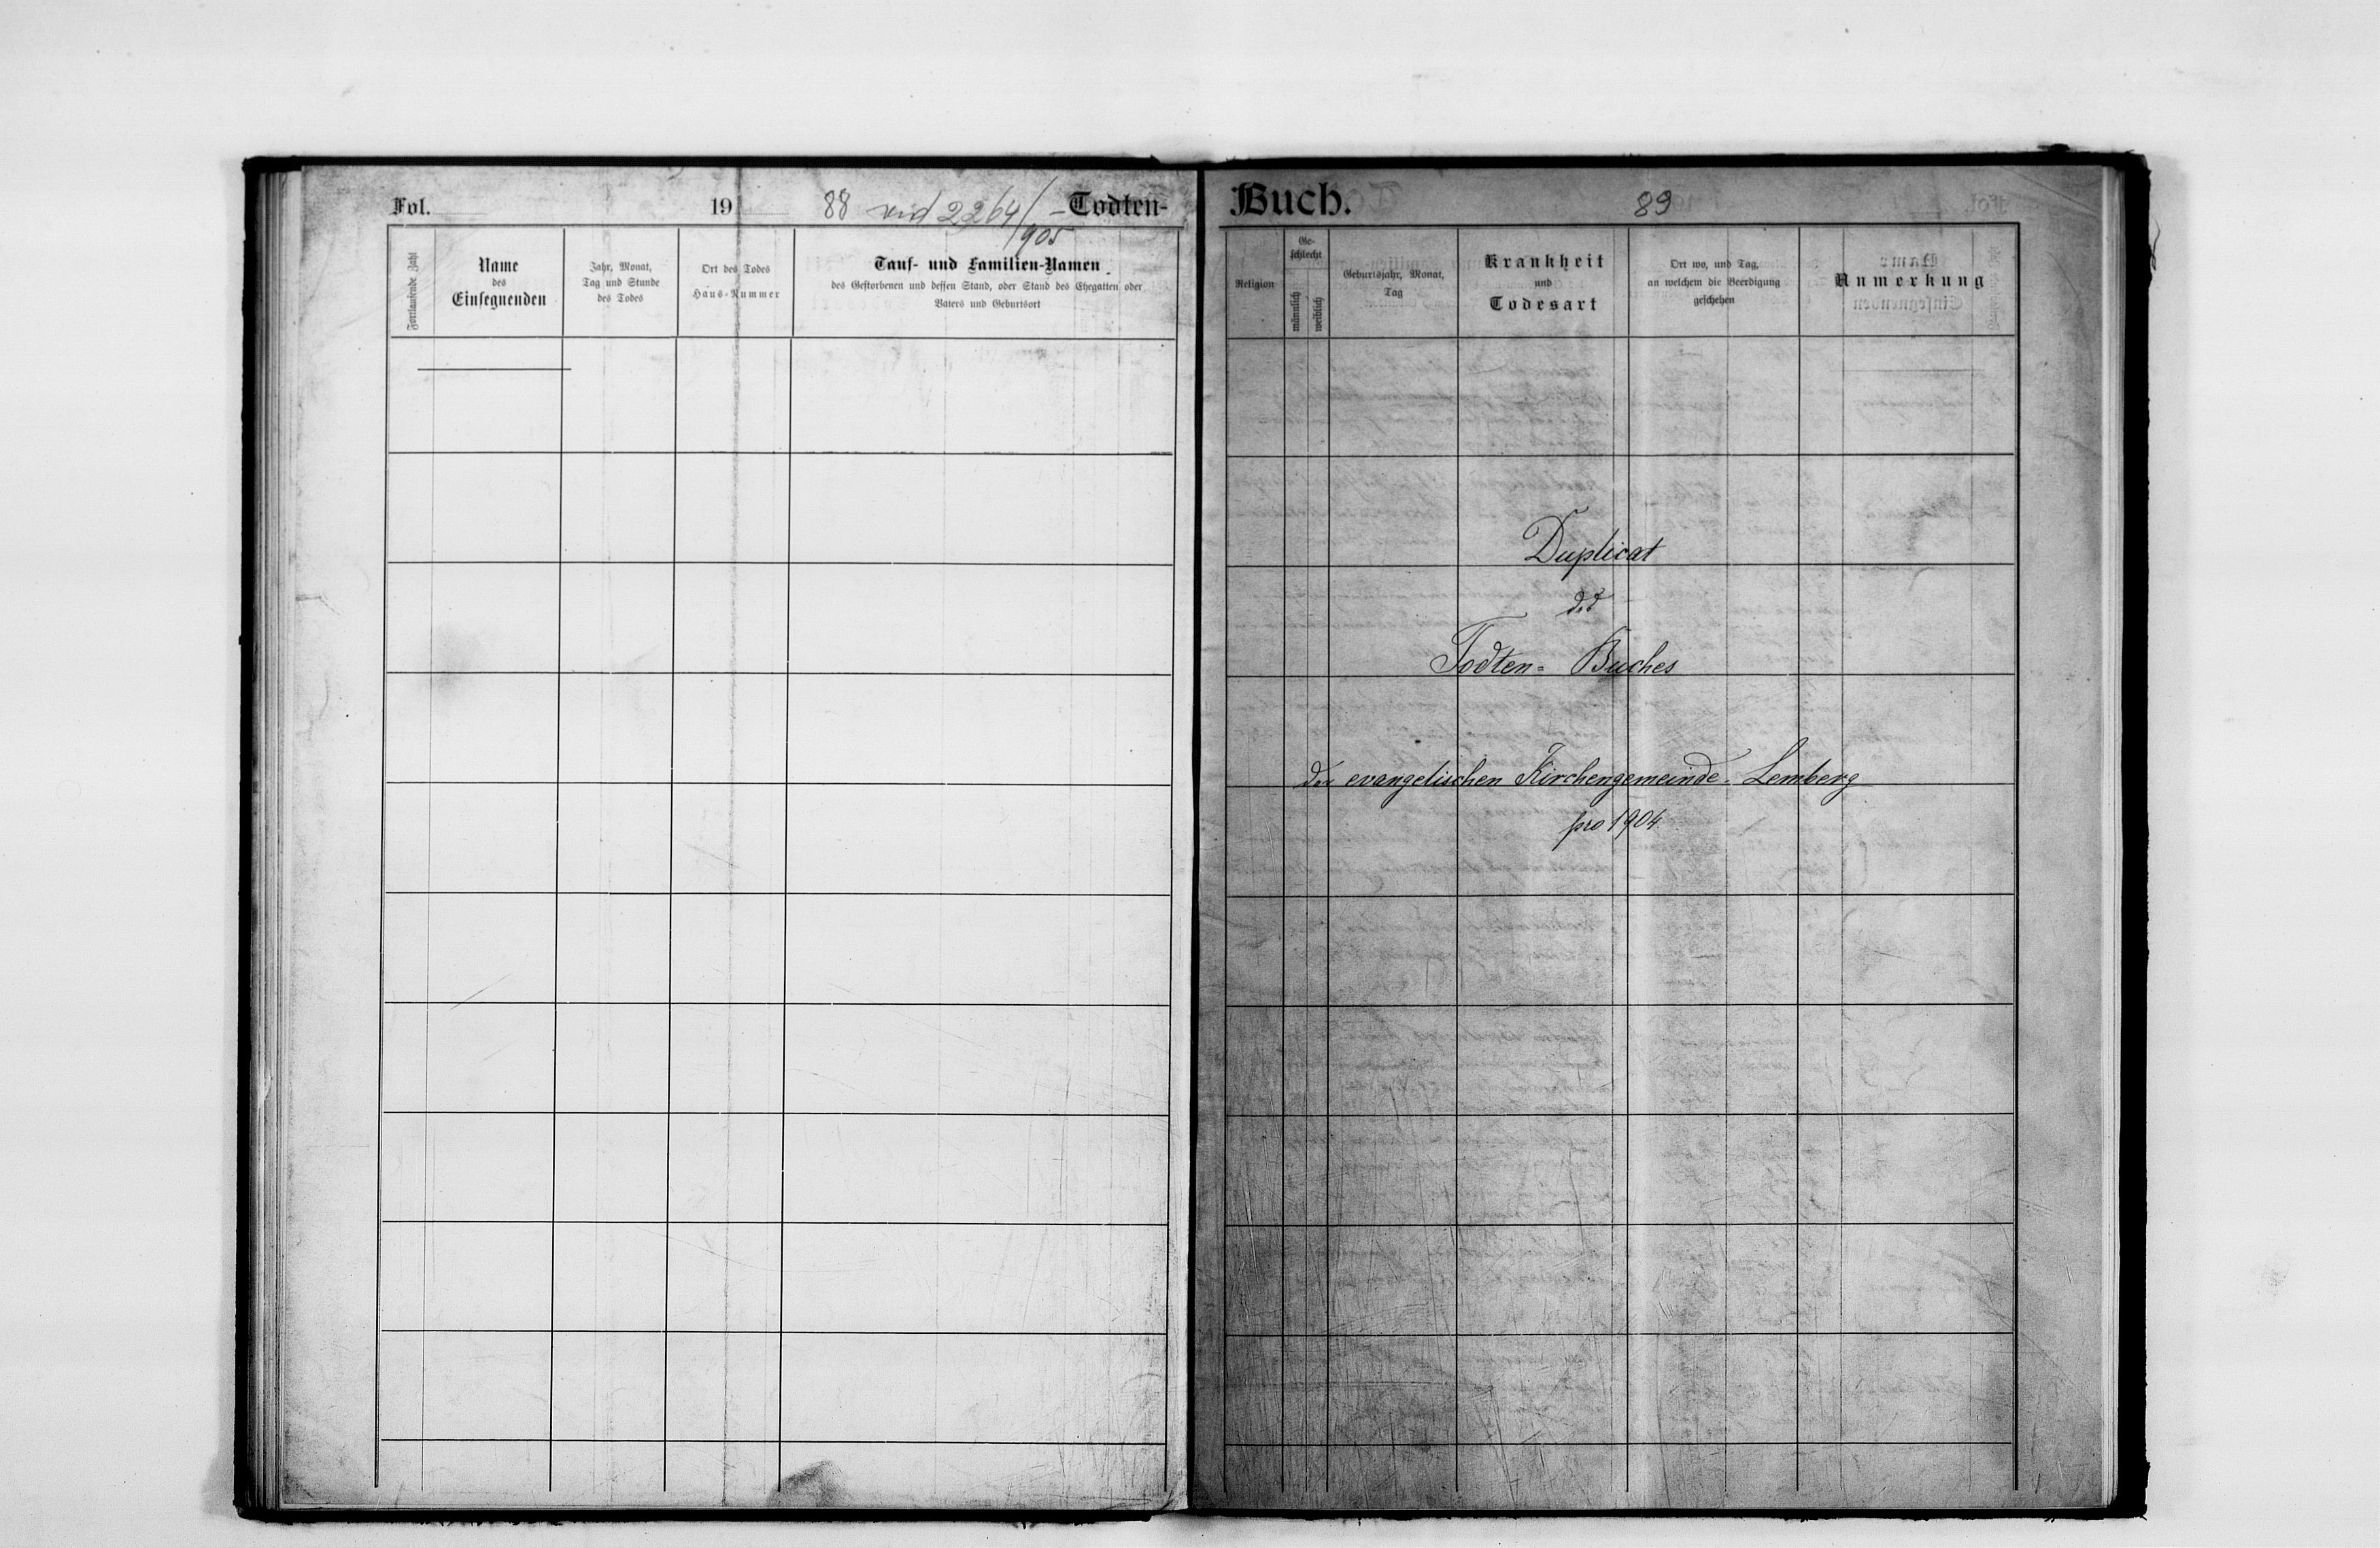 Fol.
19
88 vid 2264/905
Todten-
Fortlaufende Zahl
Name
des
Einsegnenden
Jahr, Monat,
Tag und Stunde
des Todes
Ort des Todes
Haus-Nummer
Tauf- und Familien-Namen
des Gestorbenen und dessen Stand, oder Stand des Ehegatten oder
Vaters und Geburtsort
Buch.
89
Religion
Ge-
schlecht
männlich
weiblich
Geburtsjahr, Monat,
Tag
Krankheit
und
Todesart
Ort wo, und Tag,
an welchem die Beerdigung
geschehen
Anmerkung
Duplicat
des
Todten= Buches
der evangelischen Kirchengemeinde Lemberg
pro 1904